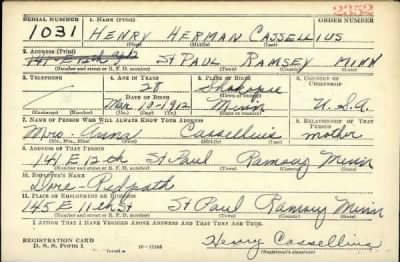 SERIAL NUMBER 1. NAME (Print) ORDER NUMBER
2352
1031 HENRY HERMAN CASSELLIUS
(First) (Middle) (Last)
2. ADDRESS (Print)
141 E 12th St PAUL RAMSEY MINN
(Number and street or R. F. D. number) (Town) (County) (State)
3. TELEPHONE 4. AGE IN YEARS 5. PLACE OF BIRTH 6. COUNTRY OF CITIZENSHIP
28 Shakopee
DATE OF BIRTH (Town or county)
Mar 10-1912 Minn U.S.A.
(Exchange) (Number) (Mo.) (Day) (Yr.) (State or country)
7. NAME OF PERSON WHO WILL ALWAYS KNOW YOUR ADDRESS 8. RELATIONSHIP OF THAT PERSON
Mrs. Anna Cassellius mother
(Mr., Mrs., Miss) (First) (Middle) (Last)
9. ADDRESS OF THAT PERSON
141 E 12th St Paul Ramsey Minn
(Number and street or R. F. D. number) (Town) (County) (State)
10. EMPLOYER'S NAME
Dore-Redpath
11. PLACE OF EMPLOYMENT OR BUSINESS
145 E 11th St St Paul Ramsey Minn
(Number and street or R. F. D. number) (Town) (County) (State)
I AFFIRM THAT I HAVE VERIFIED ABOVE ANSWERS AND THAT THEY ARE TRUE.
REGISTRATION CARD
D. S. S. FORM 1 Henry Cassellius
(Registrant's signature)